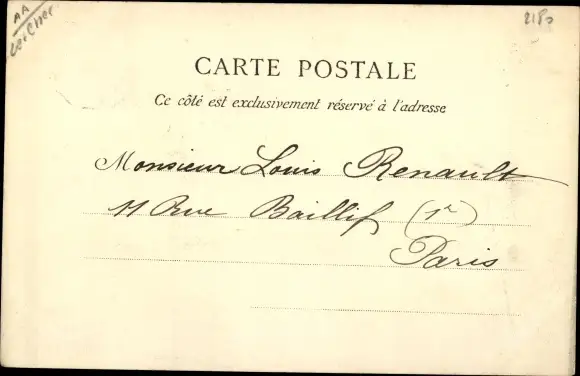 AA
2180
CARTE POSTALE
Ce côté est exclusivement réservé à l'adresse
Monsieur Louis Renault
11 Rue Baillif (1er)
Paris